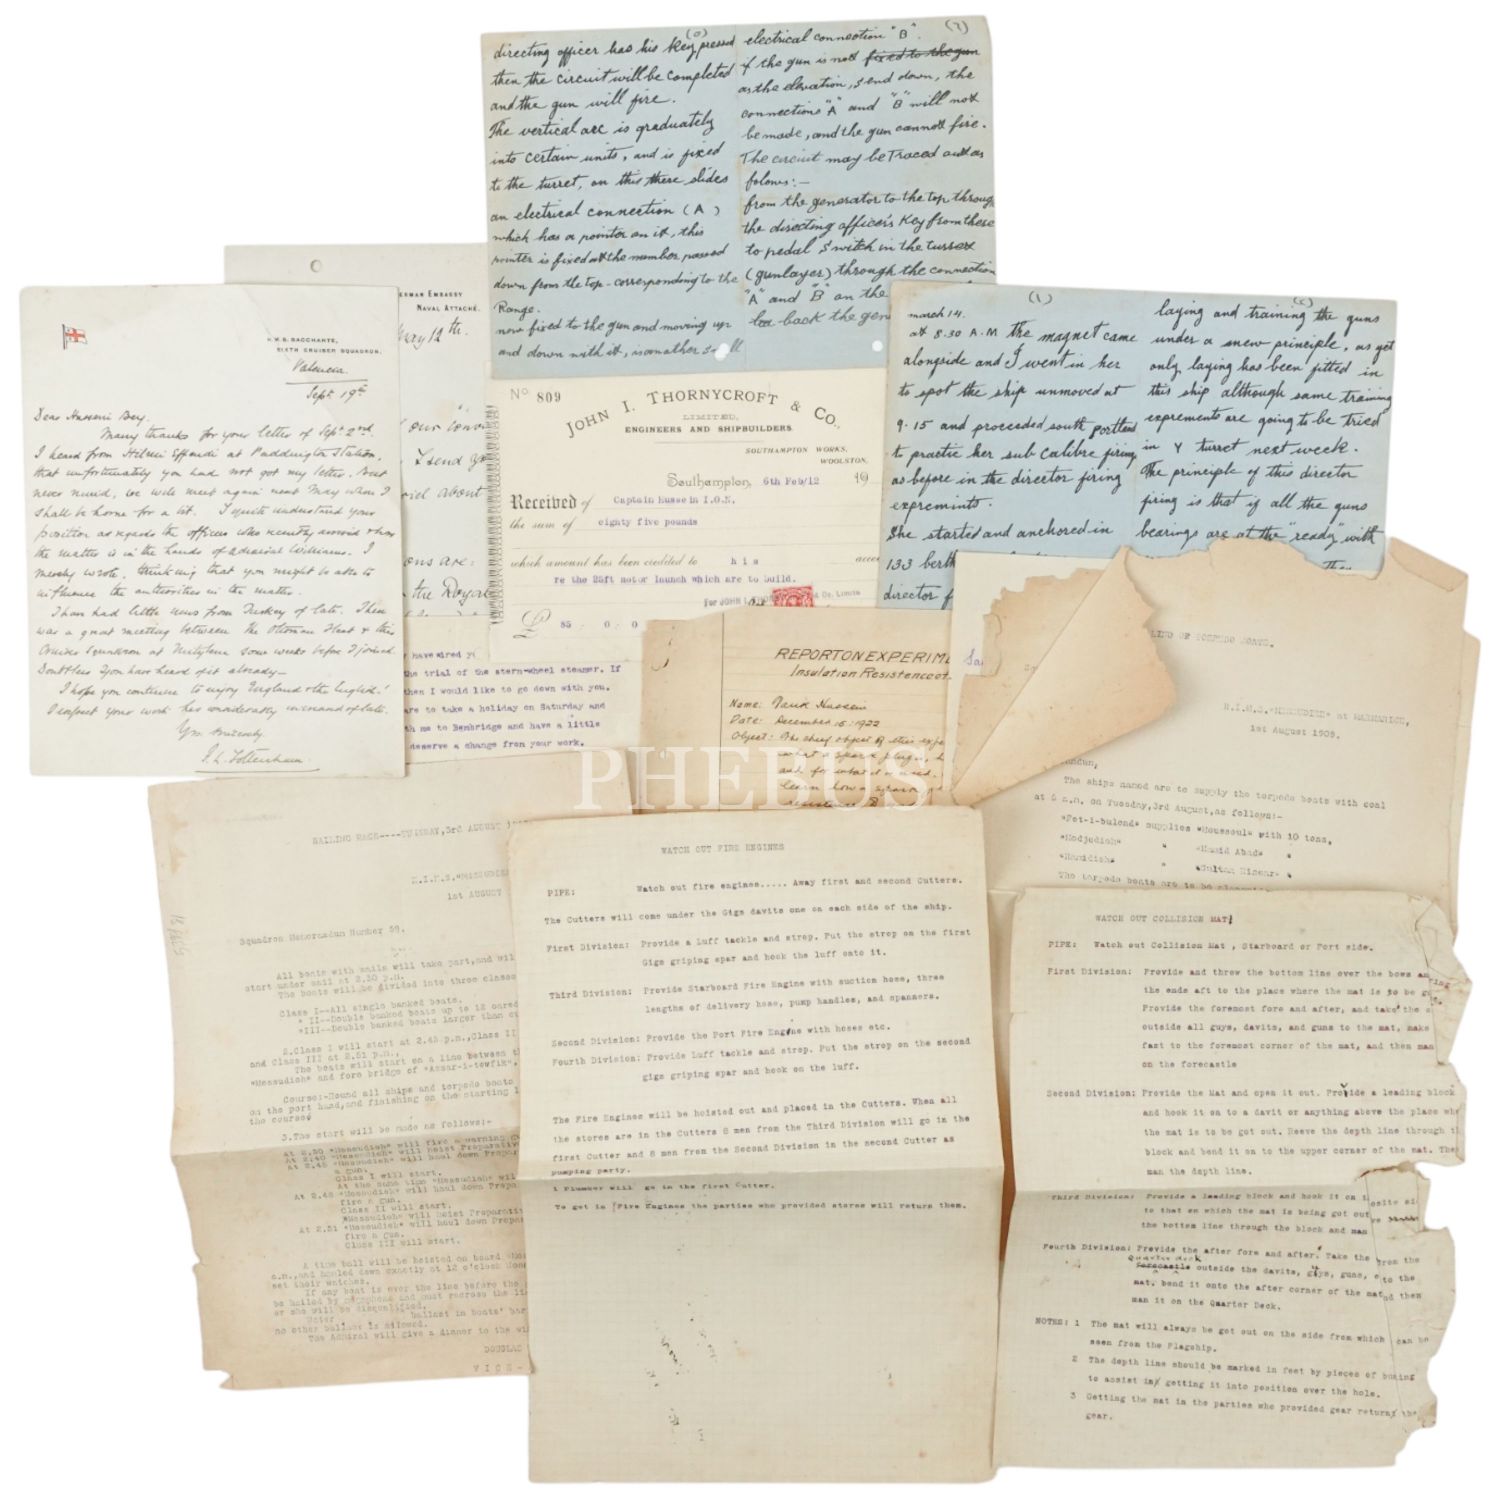 (6)
directing officer has his key pressed
then the circuit will be completed
and the gun will fire.
The vertical arc is graduately
into certain units, and is fixed
to the turret, on this there slides
an electrical connection (A)
which has a pointer on it, this
pointer is fixed at the number passed
down from the top-corresponding to the
Range.
now fixed to the gun and moving up
and down with it, is another
(7)
electrical connection "B".
if the gun is not fixed to the gun
as the elevation, send down, the
connections "A" and "B" will not
be made, and the gun cannot fire.
The circuit may be Traced out as
folows:-
from the generator to the top through
the directing officer's Key from there
to pedal switch in the turret
(gunlayer) through the connection
"A" and "B" on the
back the gen
(1)
march 14.
at 8.30 A.M the magnet came
alongside and I went in her
to spot the ship unmoved at
9.15 and proceeded south portland
to practic her sub calibre firing
as before in the director firing
expremints.
She started and anchored in
133 berth
director f
laying and training the guns
under a new principle, as yet
only laying has been fitted in
this ship although some training
exprements are going to be tried
in Y turret next week.
The principle of this director
firing is that if all the guns
bearings are at the "ready" with
GERMAN EMBASSY
NAVAL ATTACHÉ.
May 12th.
our conv
I send yo
about
ons are:
the Royal
H.M.S. BACCHANTE,
SIXTH CRUISER SQUADRON.
Valencia
Sept. 19th
Dear Husseini Bey,
Many thanks for your letter of Sept 2nd.
I heard from Hilmi Effendi at Paddington Station,
that unfortunately you had not got my letter. But
never mind, we will meet again next May when I
shall be home for a bit. I quite understand your
position as regards the officers who recently arrived & how
the matter is in the hands of Admiral Williams. I
merely wrote, thinking that you might be able to
influence the authorities in the matter.
I have had little news from Turkey of late. There
was a great meeting between the Ottoman Fleet & this
Cruiser Squadron at Mitylene some weeks before I joined.
Doubtless you have heard of it already—
I hope you continue to enjoy England & the English!
I expect your work has considerably increased of late.
Yrs. sincerely
F. L. Tottenham.
No 809
JOHN I. THORNYCROFT & CO.,
LIMITED,
ENGINEERS AND SHIPBUILDERS.
SOUTHAMPTON WORKS,
WOOLSTON,
Southampton, 6th Feb/12 19
Received of Captain Hussein I.O.N.
the sum of eighty five pounds
which amount has been credited to his acco
re the 25ft motor launch which are to build.
For JOHN I. THORNYCROFT & Co., LIMITED
£ 85 : 0 : 0
have wired yo
the trial of the stern-wheel steamer. If
then I would like to go down with you.
are to take a holiday on Saturday and
th me to Bembridge and have a little
deserve a change from your work.
REPORT ON EXPERIME
Insulation Resistence of
Name: Faruk Hussein
Date: December 15: 1922
Object: The chief object of this expe
what a spark plugin, h
and for what it is used.
learn how a
resistence
LING OF TORPEDO BOATS.
H.I.M.S. "MESSUDIEH" at MARMARICE,
1st August 1909.
The ships named are to supply the torpedo boats with coal
at 6 a.m. on Tuesday, 3rd August, as follows:-
"Fet-i-bulend" supplies "Moussoul" with 10 tons,
"Medjudieh" " "Hamid Abad" "
"Hamidieh" " "Sultan Hissar" "
The torpedo boats are to be
SAILING RACE----TUESDAY, 3rd AUGUST
H.I.M.S. "MESSUDIEH
1st AUGUST
Squadron Memorandum Number 59.
All boats with sails will take part, and wil
start under sail at 2.30 p.m.
The boats will be divided into three classes
Class I--All single banked boats.
" II--Double banked boats up to 12 oared
"III--Double banked boats larger than
2. Class I will start at 2.45 p.m., Class II
and Class III at 2.51 p.m.,
The boats will start on a line between t
"Messudieh" and fore bridge of "Assar-i-tewfik".
Course:-Round all ships and torpedo boats
on the port hand, and finishing on the starting l
the course
3. The start will be made as follows:-
At 2.30 "Messudieh" will fire a warning g
At 2.40 "Messudieh" will hoist Preparative
At 2.45 "Messudieh" will haul down Prepar
a gun.
Class I will start.
At the same time "Messudieh" wil
At 2.48 "Messudieh" will haul down Prepar
fire a gun.
Class II will start.
"Messudieh" will hoist Preparativ
At 2.51 "Messudieh" will haul down Prepar
fire a gun.
Class III will start.
A time ball will be hoisted on board "Mes
a.m., and hauled down exactly at 12 o'clock Noon
set their watches.
If any boat is over the line before the
be hailed by megaphone and must recross the li
or she will be disqualified.
Water ballast in boats' bar
no other ballast is allowed.
The Admiral will give a dinner to the wi
DOUGLAS
VICE-
WATCH OUT FIRE ENGINES
PIPE: Watch out fire engines..... Away first and second Cutters.
The Cutters will come under the Gigs davits one on each side of the ship.
First Division: Provide a Luff tackle and strop. Put the strop on the first
Gigs griping spar and hook the luff onto it.
Third Division: Provide Starboard Fire Engine with suction hose, three
lengths of delivery hose, pump handles, and spanners.
Second Division: Provide the Port Fire Engine with hoses etc.
Fourth Division: Provide Luff tackle and strop. Put the strop on the second
gigs griping spar and hook on the luff.
The Fire Engines will be hoisted out and placed in the Cutters. When all
the stores are in the Cutters 8 men from the Third Division will go in the
first Cutter and 8 men from the Second Division in the second Cutter as
pumping party.
1 Plumber will go in the first Cutter.
To get in Fire Engines the parties who provided stores will return them.
WATCH OUT COLLISION MAT
PIPE: Watch out Collision Mat , Starboard or Port side.
First Division: Provide and throw the bottom line over the bows an ring
the ends aft to the place where the mat is to be g
Provide the foremost fore and after, and take the e
outside all guys, davits, and guns to the mat, make
fast to the foremost corner of the mat, and then man
on the forecastle
Second Division: Provide the Mat and open it out. Provide a leading block
and hook it on to a davit or anything above the place whe
the mat is to be got out. Reeve the depth line through t
block and bend it on to the upper corner of the mat. The
man the depth line.
Third Division: Provide a leading block and hook it on osite si
to that on which the mat is being got out
the bottom line through the block and man
Fourth Division: Provide the after fore and after. Take the from the
Quarter deck
forecastle outside the davits, guys, guns, e to the
mat, bend it onto the after corner of the mat nd then
man it on the Quarter Deck.
NOTES: 1 The mat will always be got out on the side from which can be
seen from the Flagship.
2 The depth line should be marked in feet by pieces of bunting
to assist in getting it into position over the hole.
3 Getting the mat in the parties who provided gear return the
gear.
PHEBUS